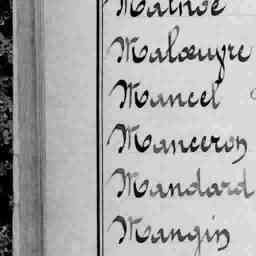 Malnoë
Malœuvre
Mancel
Manceron
Mandard
Mangin